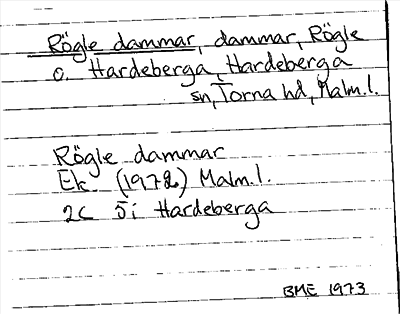 Rögle dammar, dammar, Rögle
o. Hardeberga, Hardeberga
sn, Torna hd, Malm.l.
Rögle dammar
Ek (1972) Malm.l.
2C 5i Hardeberga
BME 1973